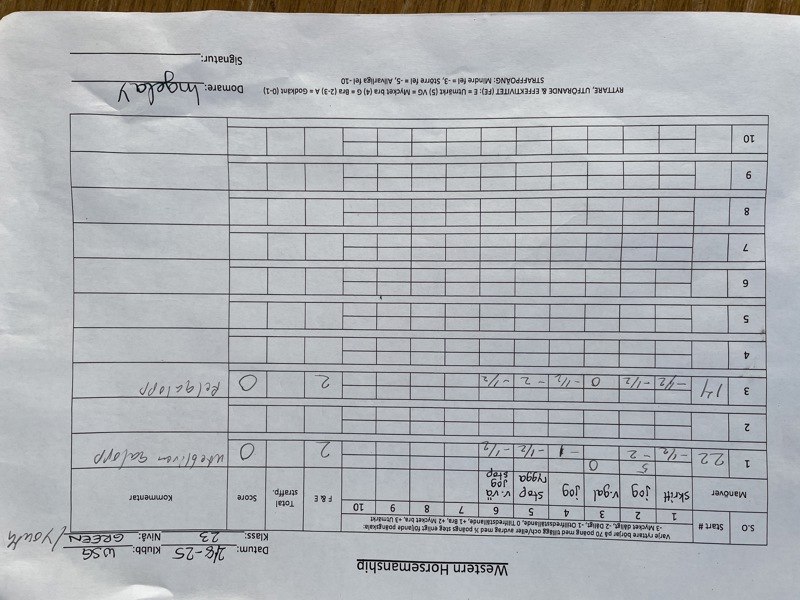 Western Horsemanship
Datum: 2/8-25 Klubb: WSG
Klass: 23 Nivå: GREEN/Youth
Varje ryttare börjar på 70 poäng med tillägg och/eller avdrag med ½ poängs steg enligt följande poängskala:
-3 Mycket dåligt, -2 Dåligt, -1 Otillfredsställande, 0 Tillfredsställande, +1 Bra, +2 Mycket Bra, +3 Utmärkt
S.O Start # 1 2 3 4 5 6 7 8 9 10 F & E Total straffp. Score Kommentar
Manöver skritt jog v.gal jog stop rygga v.vä jog stop
5 0
1 22 -1/2 -2 -1 -1/2 -1/2 2 0 utebliven galopp
2
3 14 -1/2 -1/2 0 -1/2 -2 -1/2 2 0 Fel galopp
4
5
6
7
8
9
10
RYTTARE, UTFÖRANDE & EFFEKTIVITET (FE): E = Utmärkt (5) VG = Mycket bra (4) G = Bra (2-3) A = Godkänt (0-1)
STRAFFPOÄNG: Mindre fel = -3, Större fel = -5, Allvarliga fel -10
Domare: Ingela Y
Signatur: